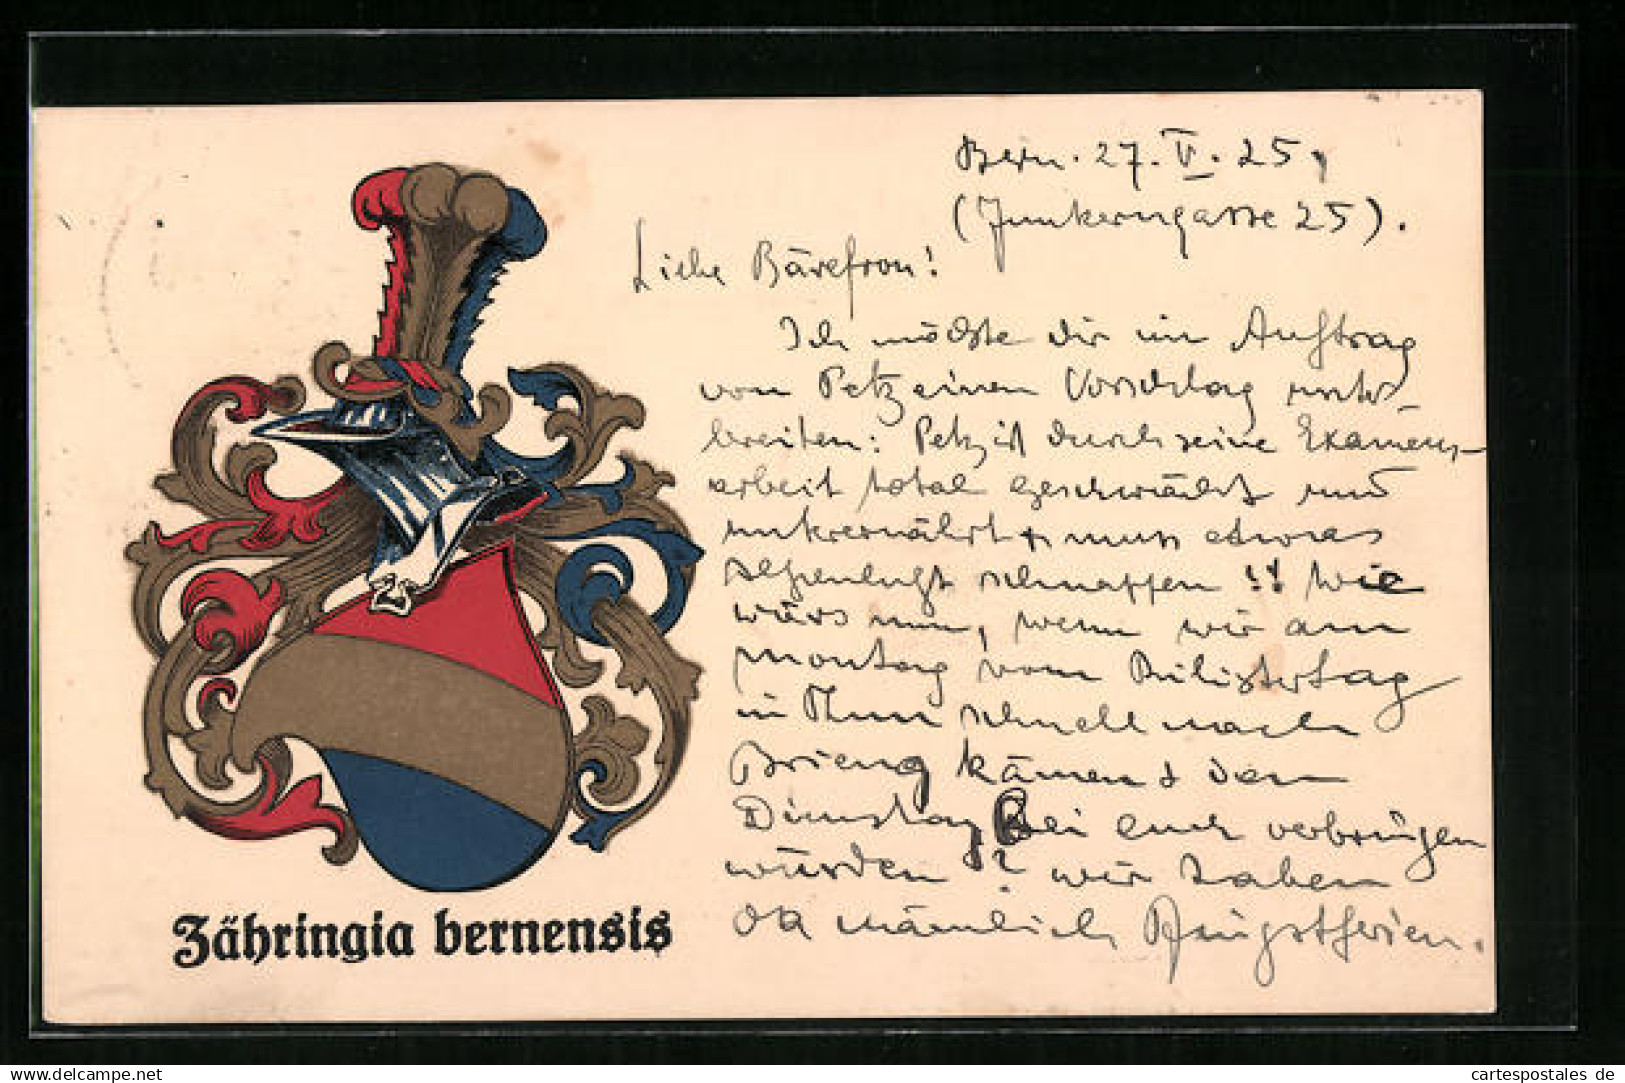 Bern. 27. V. 25.
(Junkerngasse 25).
Liebe Bärefron!
Ich möchte dir im Auftrag
von Petz einen Vorschlag unter-
breiten: Petz ist durch seine Examens-
arbeit total geschwächt und
unterernährt & muss etwas
Alpenluft schnappen!! Wie
wärs nun, wenn wir am
Montag vom Philistertag
in Thun schnell nach
Brienz kämen & den
Dienstag bei euch verbringen
würden? Wir haben
da nämlich Pfingstferien.
Zähringia bernensis
www.cartespostales.eu
cartespostales de